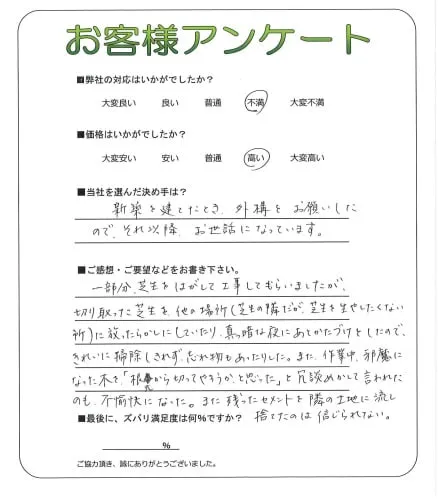 お客様アンケート
■弊社の対応はいかがでしたか？
大変良い 良い 普通 不満 大変不満
■価格はいかがでしたか？
大変安い 安い 普通 高い 大変高い
■当社を選んだ決め手は？
新築を建てたとき、外構をお願いした
ので、それ以降、お世話になっています。
■ご感想・ご要望などをお書き下さい。
一部分、芝生をはがして工事してもらいましたが、
切り取った芝生を、他の場所（芝生の隣だが、芝生を生やしたくない
所）に放ったらかしにしていたり、真っ暗な夜にあとかたづけをしたので、
きれいに掃除しきれず、忘れ物もあったりした。また、作業中、邪魔に
なった木を「根元から切ってやろうか、と思った」と冗談めかして言われた
のも、不愉快になった。また残ったセメントを隣の土地に流し
捨てたのは信じられない。
■最後に、ズバリ満足度は何％ですか？
％
ご協力頂き、誠にありがとうございました。